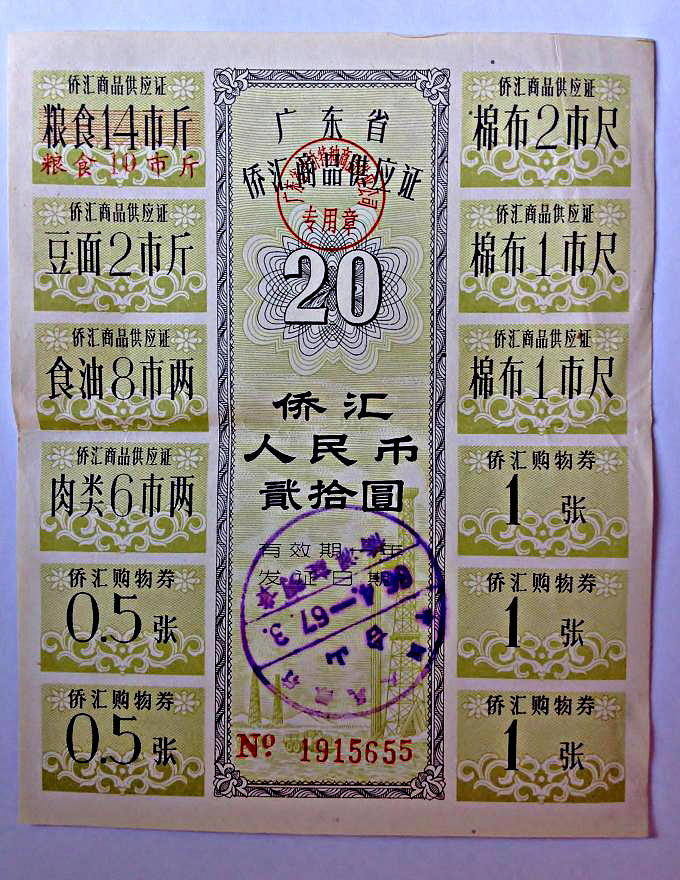 侨汇商品供应证
粮食14市斤
粮食10市斤
侨汇商品供应证
豆·面2市斤
侨汇商品供应证
食油8市两
侨汇商品供应证
肉类6市两
侨汇购物券
0.5张
侨汇购物券
0.5张
广东省
侨汇商品供应证
专用章
20
侨汇
人民币
贰拾圓
有效期一年
发证日期
66.4.—67.3.
台山
№ 1915655
侨汇商品供应证
棉布2市尺
侨汇商品供应证
棉布1市尺
侨汇商品供应证
棉布1市尺
侨汇购物券
1张
侨汇购物券
1张
侨汇购物券
1张